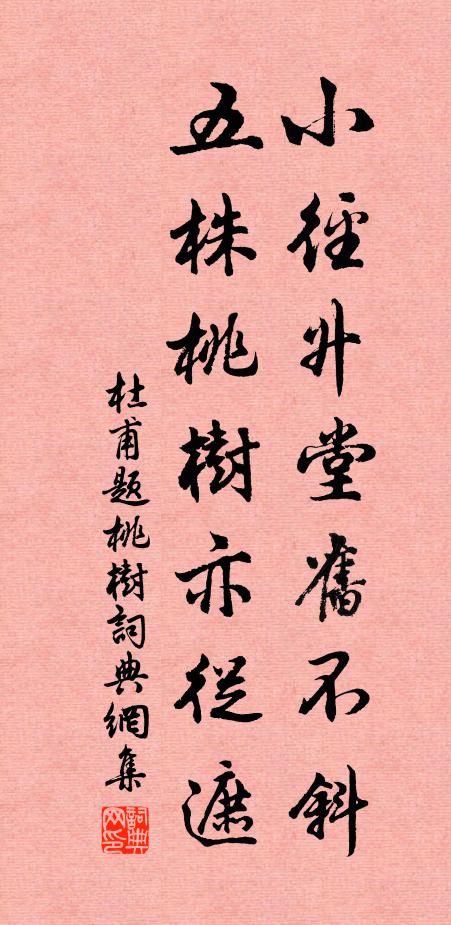 小徑升堂舊不斜
五株桃樹亦從遮
杜甫題桃樹詞典網集
詞典网印